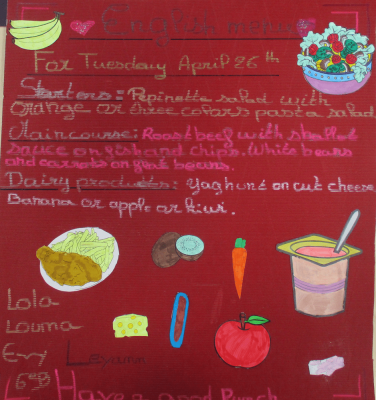 English menu
For Tuesday April 26th
Starters: Pepinette salad with
orange or three colors pasta salad
Maincourse: Roastbeef with shallot
sauce or fish and chips. White beans
and carrots or flat beans.
Dairy products: yaghunt or cut cheese
Banana or apple or kiwi.
Lola
Louma
Evy
6eB
Have a good lunch